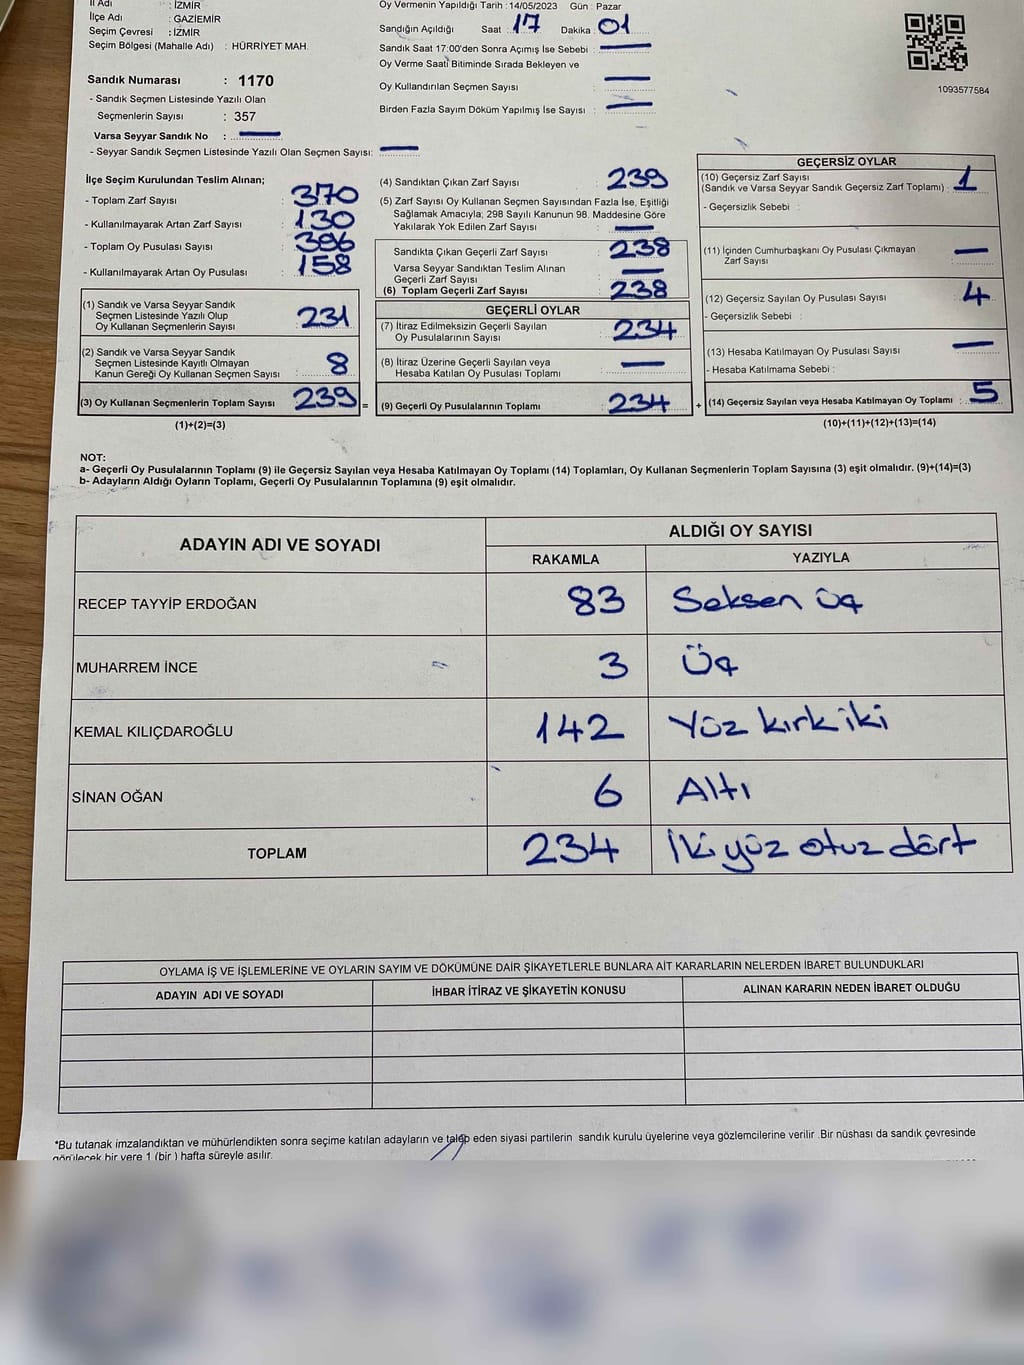 İl Adı : İZMİR
İlçe Adı : GAZİEMİR
Seçim Çevresi : İZMİR
Seçim Bölgesi (Mahalle Adı) : HÜRRİYET MAH.
Sandık Numarası : 1170
- Sandık Seçmen Listesinde Yazılı Olan
Seçmenlerin Sayısı : 357
Varsa Seyyar Sandık No : —
- Seyyar Sandık Seçmen Listesinde Yazılı Olan Seçmen Sayısı: —
Oy Vermenin Yapıldığı Tarih : 14/05/2023 Gün : Pazar
Sandığın Açıldığı Saat : 17 Dakika : 01
Sandık Saat 17:00'den Sonra Açımış İse Sebebi : —
Oy Verme Saati Bitiminde Sırada Bekleyen ve
Oy Kullandırılan Seçmen Sayısı : —
Birden Fazla Sayım Döküm Yapılmış İse Sayısı : —
1093577584
İlçe Seçim Kurulundan Teslim Alınan;
- Toplam Zarf Sayısı : 370
- Kullanılmayarak Artan Zarf Sayısı : 130
- Toplam Oy Pusulası Sayısı : 396
- Kullanılmayarak Artan Oy Pusulası : 158
(1) Sandık ve Varsa Seyyar Sandık
Seçmen Listesinde Yazılı Olup
Oy Kullanan Seçmenlerin Sayısı : 231
(2) Sandık ve Varsa Seyyar Sandık
Seçmen Listesinde Kayıtlı Olmayan
Kanun Gereği Oy Kullanan Seçmen Sayısı : 8
(3) Oy Kullanan Seçmenlerin Toplam Sayısı : 239 =
(1)+(2)=(3)
(4) Sandıktan Çıkan Zarf Sayısı : 239
(5) Zarf Sayısı Oy Kullanan Seçmen Sayısından Fazla İse, Eşitliği
Sağlamak Amacıyla; 298 Sayılı Kanunun 98. Maddesine Göre
Yakılarak Yok Edilen Zarf Sayısı : —
Sandıkta Çıkan Geçerli Zarf Sayısı : 238
Varsa Seyyar Sandıktan Teslim Alınan
Geçerli Zarf Sayısı : —
(6) Toplam Geçerli Zarf Sayısı : 238
GEÇERLİ OYLAR
(7) İtiraz Edilmeksizin Geçerli Sayılan
Oy Pusulalarının Sayısı : 234
(8) İtiraz Üzerine Geçerli Sayılan veya
Hesaba Katılan Oy Pusulası Toplamı : —
(9) Geçerli Oy Pusulalarının Toplamı : 234 +
GEÇERSİZ OYLAR
(10) Geçersiz Zarf Sayısı
(Sandık ve Varsa Seyyar Sandık Geçersiz Zarf Toplamı) : 1
- Geçersizlik Sebebi :
(11) İçinden Cumhurbaşkanı Oy Pusulası Çıkmayan
Zarf Sayısı : —
(12) Geçersiz Sayılan Oy Pusulası Sayısı : 4
- Geçersizlik Sebebi :
(13) Hesaba Katılmayan Oy Pusulası Sayısı : —
- Hesaba Katılmama Sebebi :
(14) Geçersiz Sayılan veya Hesaba Katılmayan Oy Toplamı : 5
(10)+(11)+(12)+(13)=(14)
NOT:
a- Geçerli Oy Pusulalarının Toplamı (9) ile Geçersiz Sayılan veya Hesaba Katılmayan Oy Toplamı (14) Toplamları, Oy Kullanan Seçmenlerin Toplam Sayısına (3) eşit olmalıdır. (9)+(14)=(3)
b- Adayların Aldığı Oyların Toplamı, Geçerli Oy Pusulalarının Toplamına (9) eşit olmalıdır.
ADAYIN ADI VE SOYADI ALDIĞI OY SAYISI
RAKAMLA YAZIYLA
RECEP TAYYİP ERDOĞAN 83 Seksen üç
MUHARREM İNCE 3 Üç
KEMAL KILIÇDAROĞLU 142 Yüz kırk iki
SİNAN OĞAN 6 Altı
TOPLAM 234 İki yüz otuz dört
OYLAMA İŞ VE İŞLEMLERİNE VE OYLARIN SAYIM VE DÖKÜMÜNE DAİR ŞİKAYETLERLE BUNLARA AİT KARARLARIN NELERDEN İBARET BULUNDUKLARI
ADAYIN ADI VE SOYADI İHBAR İTİRAZ VE ŞİKAYETİN KONUSU ALINAN KARARIN NEDEN İBARET OLDUĞU
*Bu tutanak imzalandıktan ve mühürlendikten sonra seçime katılan adayların ve talep eden siyasi partilerin sandık kurulu üyelerine veya gözlemcilerine verilir. Bir nüshası da sandık çevresinde
görülecek bir yere 1 (bir) hafta süreyle asılır.